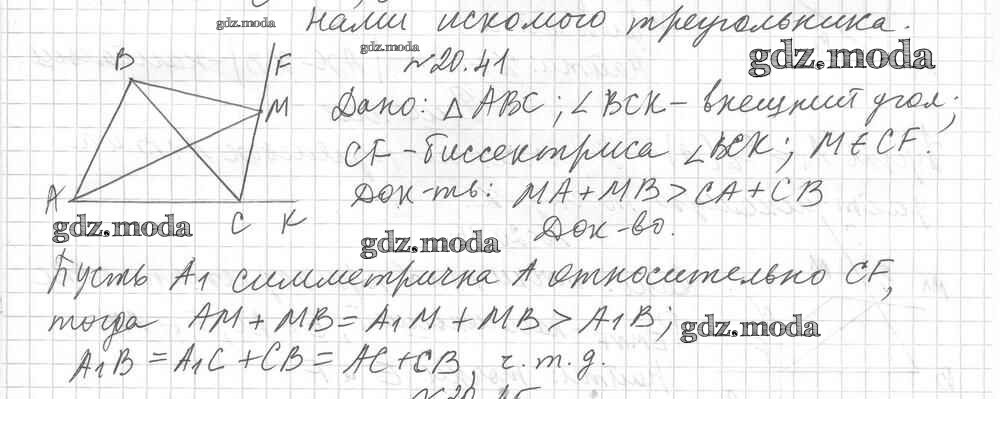 нами искомого треугольника.
gdz.moda
gdz.moda
№20.41
gdz.moda
B
F
M
A
C
K
Дано: △ABC; ∠BCK – внешний угол;
CF – биссектриса ∠BCK; M∈CF.
Док-ть: MA + MB > CA + CB
Док-во.
gdz.moda
gdz.moda
Пусть A₁ симметрична A относительно CF,
тогда AM + MB = A₁M + MB > A₁B;
gdz.moda
A₁B = A₁C + CB = AC + CB, ч.т.д.